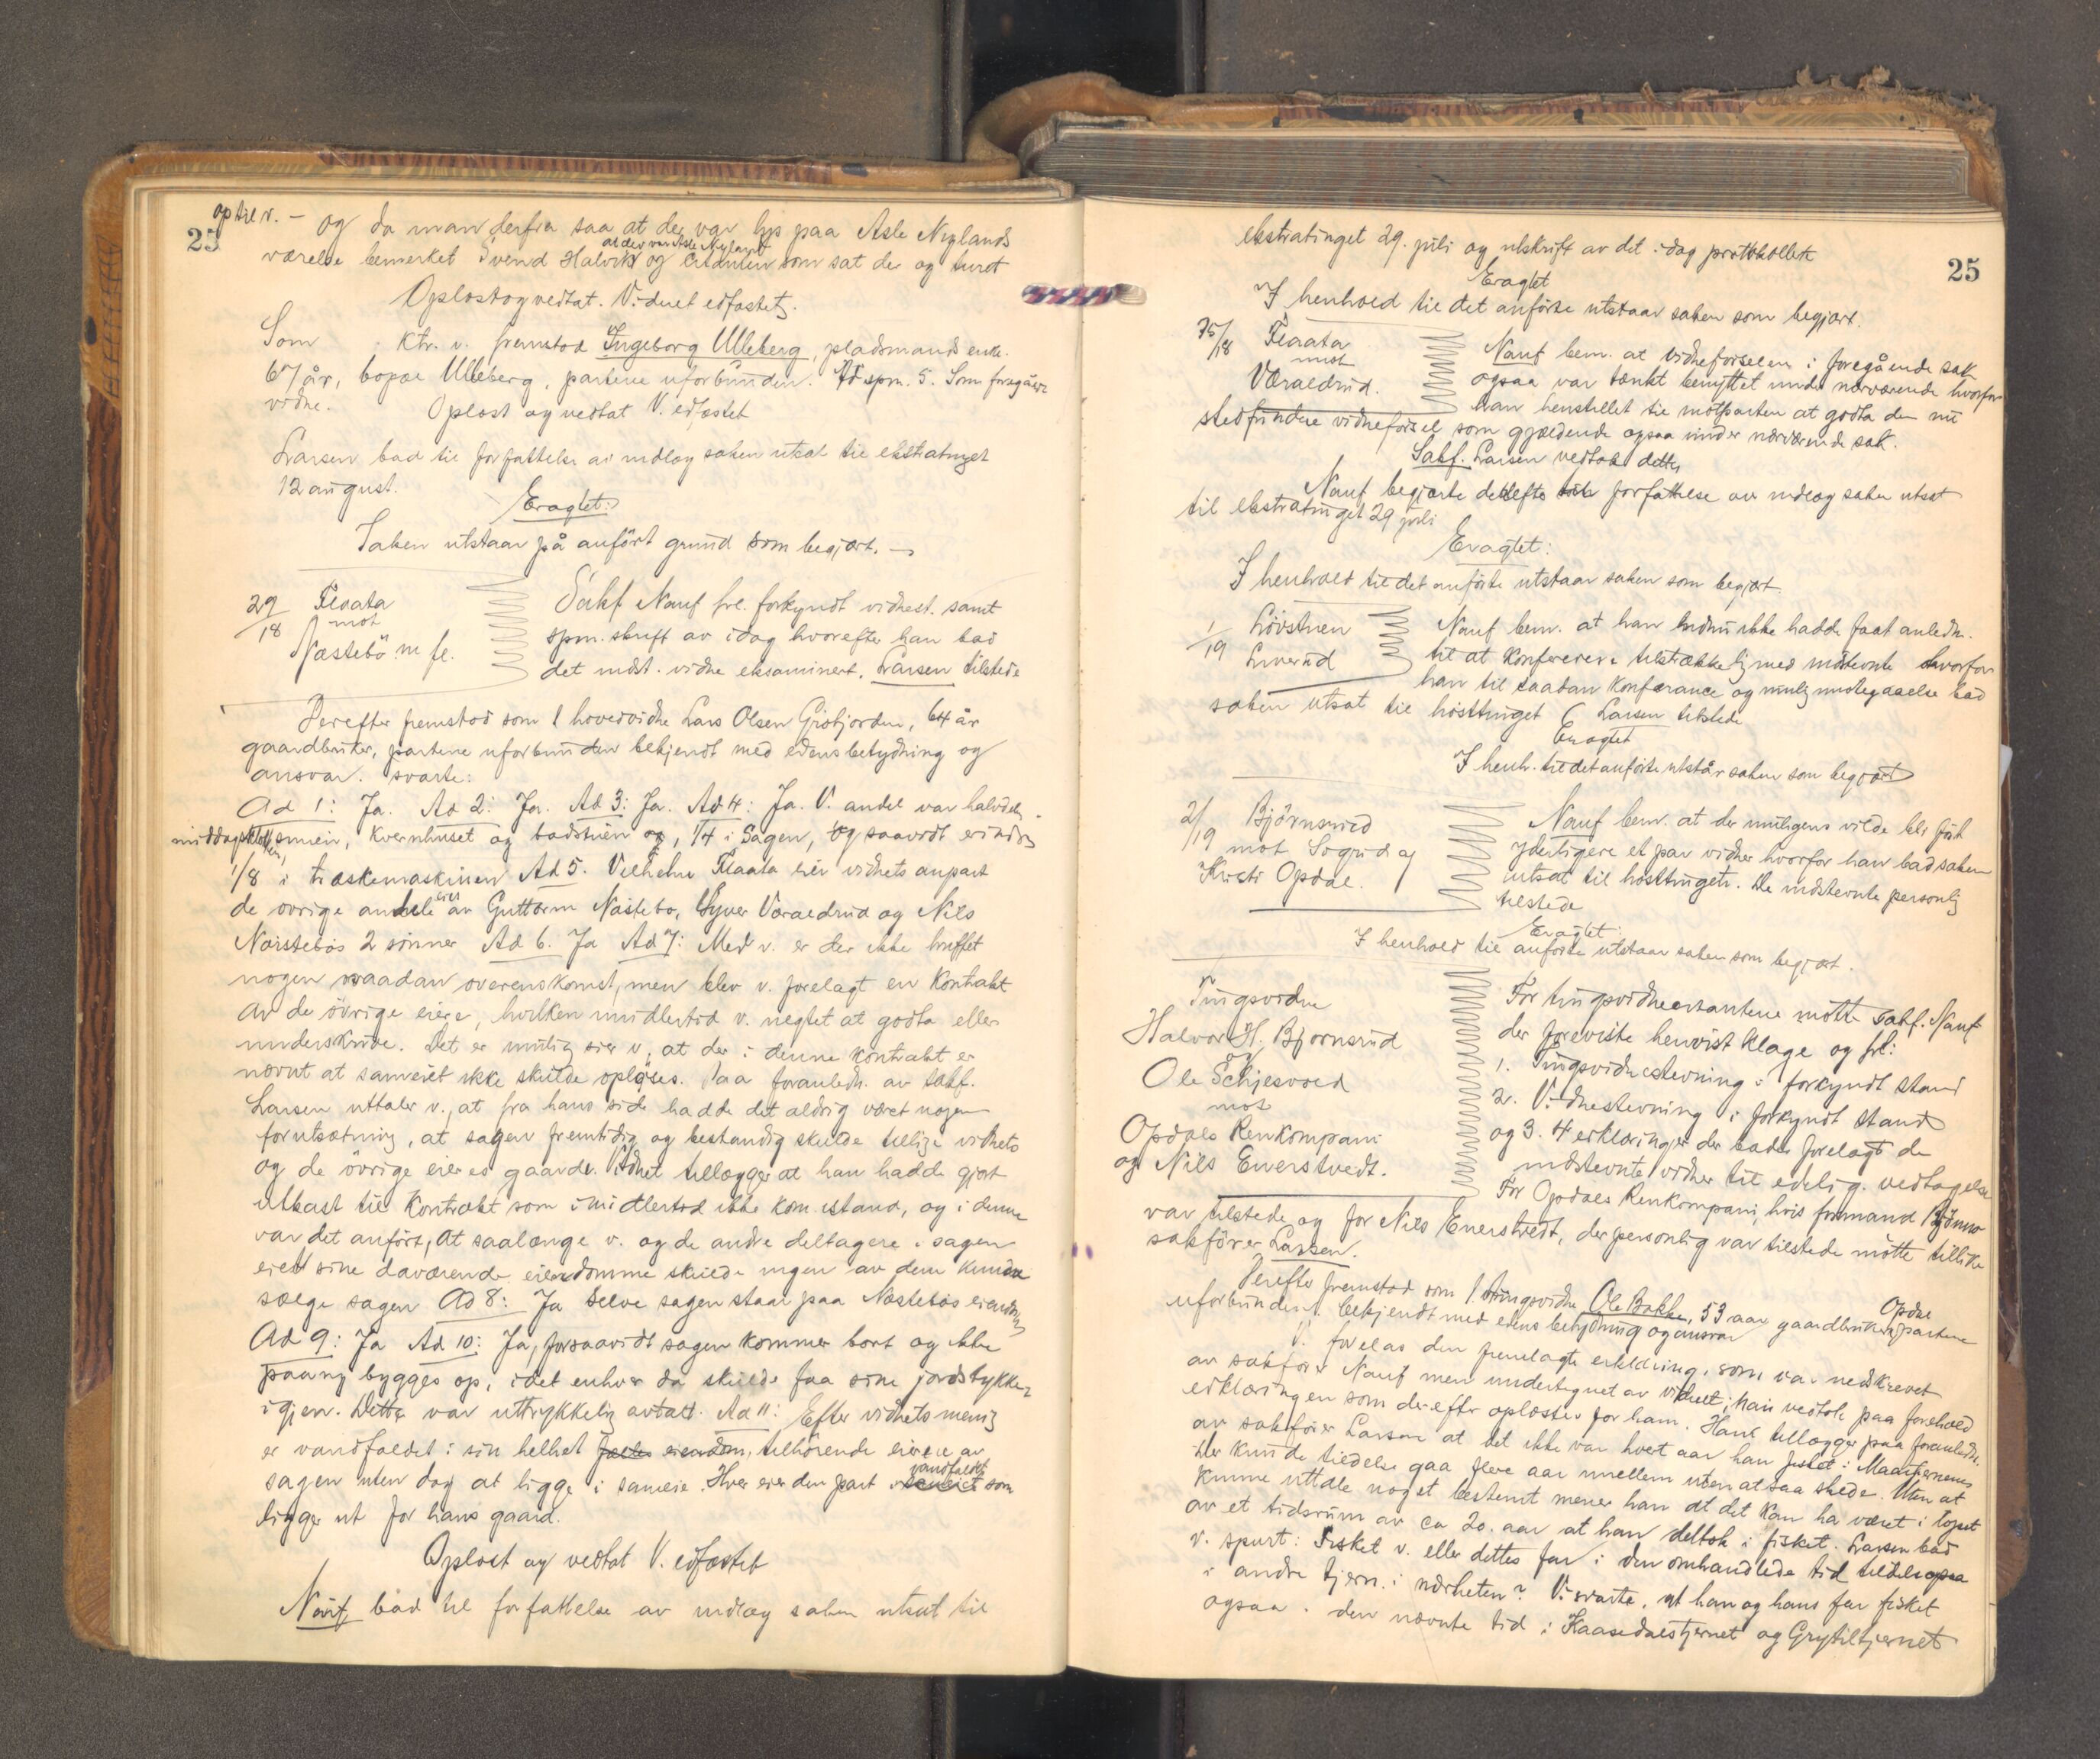 op til v. – og da man derfra saa at der var lys paa Asle Nylands
25
at der var Asle Nyland
værelse bemerket Svend Halvik og citanten som sat der og turet
Oplæst og vedtat. Vidnet edfæstet.
Som ktr. v. fremstod Ingeborg Ulleberg, pladsmands enke.
67 år, bopæl Ulleberg, partene uforbunden. Ad spm. 5. Som foregåen
vidne. Oplæst og vedtat V. edfæstet
Larsen bad til forfattelse av indlæg saken utsat til ekstratinget
12 august.
Eragtet:
Saken utstaar på anført grund som begjært. –
29/18 Flaata
mot
Næstebö m fl.
Sakf Nauf frl. forkyndt vidnest. samt
spm. skrift av idag hvorefter han bad
det indst. vidne eksaminert. Larsen tilstede
Derefter fremstod som 1 hovedvidne Lars Olsen Gisfjorden, 64 år
gaardbruker, partene uforbunden bekjendt med edens betydning og
ansvar. svarte:
Ad 1: Ja. Ad 2: Ja. Ad 3: Ja. Ad 4: Ja. V. andel var halvdelen
middagsklokken, smien, kvernhuset og badstuen og, 1/4 i Sagen, og saavidt erindres
1/8 i træskemaskinen Ad 5. Vilhelm Flaata eier vidnets anpart
de øvrige andele eies av Guttorm Nästebø, Syver Våraedrud og Nils
Næstebøs 2 sønner Ad 6. Ja Ad 7: Med v. er der ikke truffet
nogen saadan overenskomst, men blev v. forelagt en kontrakt
av de övrige eiere, hvilken imidlertid v. negtet at godta eller
underskrive. Det er mulig sier v, at der i denne kontrakt er
nævnt at sameiet ikke skulde opløses. Paa foranledn. av sakf.
Larsen uttaler v., at fra hans side hadde det aldrig været nogen
forutsætning, at sagen fremtidig og bestandig skulde tillige vidnets
og de övrige eieres gaarde. Vidnet tillægger at han hadde gjort
utkast til kontrakt som imidlertid ikke kom istand, og i denne
var det anført, at saalænge v. og de andre deltagere i sagen
eiet sine daværende eiendomme skulde ingen av dem kunde
sælge sagen Ad 8: Ja Selve sagen staar paa Næstebøs eiendom
Ad 9: Ja Ad 10: Ja, forsaavidt sagen kommer bort og ikke
paany bygges op, idet enhver da skulde faa sine jordstykker
igjen. Dette var uttrykkelig avtalt. Ad 11: Efter vidnets mening
er vandfaldet i sin helhet eiendom, tilhörende eierne av
vandfaldet
sagen uten dog at ligge i sameie. Hver eier den part i sameiet som
ligger ut for hans gaard.
Oplæst og vedtat V. edfæstet
Nauf bad til forfattelse av indlæg saken utsat til
ekstratinget 29. juli og utskrift av det idag protokollerte
25
Eragtet
I henhold til det anförte utstaar saken som begjært.
35/18 Flaata
mot
Våraedrud.
Nauf bem. at vidneførselen i foregående sak
ogsaa var tænkt benyttet under nærværende hvorfor
han henstillet til motparten at godta den nu
stedfundne vidneførsel som gjældende ogsaa under nærværende sak.
Sakf. Larsen vedtok dette,
Nauf begjærte derefter til forfattelse av indlæg saken utsat
til ekstratinget 29 juli
Eragtet:
I henhold til det anförte utstaar saken som begjært.
1/19 Lövstuen
Liverud
Nauf bem. at han endnu ikke hadde faat anledn.
til at konferere tilstrækkelig med indstevnte hvorfor
han til saadan konferance og mulig imøtegaaelse bad
saken utsat til høsttinget Larsen tilstede
Eragtet
I henh. til det anförte utstår saken som begjært
2/19 Björnsrud
mot Sigrid og
Kristi Opdal.
Nauf bem. at der muligens vilde bli ført
yderligere et par vidner hvorfor han bad saken
utsat til hösttinget. De indstevnte personlig
tilstede
Eragtet:
I henhold til anførte utstaar saken som begjært.
Tingsvidne
Halvor H. Bjørnsrud
og
Ole Schjesvold
mot
Opdals Renkompani
og Nils Enerstvedt.
For tingsvidnecitantene mötte sakf. Nauf
der foreviste henvist klage og frl:
1. Tingsvidnestevning i forkyndt stand
2. Vidnestevning i forkyndt stand
og 3. 4 erklæringer der bades forelagt de
indstevnte vidner til edelig vedtagelse
For Opdals Renkompani, hvis formand
var tilstede og for Nils Enerstvedt, der personlig var tilstede mötte tillike
sakförer Larsen.
Derefter fremstod som 1. tingsvidne Ole Bakke, 53 aar gaardbruker Opdal partene
uforbunden. bekjendt med edens betydning og ansvar
V. forelas den fremlagte erklæring, som var nedskrevet
av sakfører Nauf men undertegnet av vidnet; han vedtok paa forehold
erklæringen som derefter oplæstes for ham. Han tillægger paa foranledn.
av sakfører Larsen at det ikke var hvert aar han fisket i Maartjernene
der kunde tildels gaa flere aar imellem uten at saa skede. Uten at
kunne uttale noget bestemt mener han at det kan ha været i løpet
av et tidsrum av ca 20. aar at han deltok i fisket. Larsen bad
v. spurt: Fisket v. eller dettes far i den omhandlede tid tildels ogsaa
i andre tjern i nærheten? V. svarte, at han og hans far fisket
ogsaa i den nævnte tid i Kaasedalstjernet og Gryttiltjernet